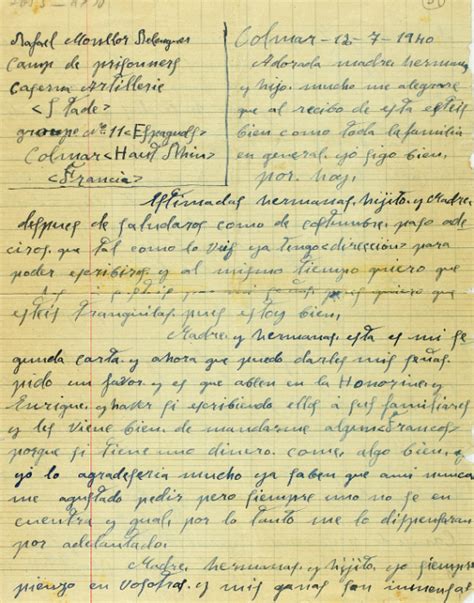 Rafael Moullor Belenguer
Camp de prisonners
Caserna Artillerie
<Stade>
groupe nº 11 <Espagnols>
Colmar <Haut Rhin>
<Francia>
Colmar - 12-7-1940
Adorada madre, hermanas
y hijo. mucho me alegrare
que al recibo de esta esteis
bien como toda la familia
en general. yo sigo bien,
por hoy.
Estimadas hermanas, hijito, y Madre,
despues de saludaros como de costumbre, paso a
deciros, que tal como lo veis ya tengo <direccion> para
poder escribiros y al mismo tiempo quiero que
esteis tranquilas, pues estoy bien,
Madre, y hermanas, esta es mi se
gunda carta, y ahora que puedo darles mis señas,
pido un favor, y es que ablen en la Honorine, y
Enrique, y haver si escribiendo ellos a sus familiares
y les viene bien, de mandarme algun <franco>
porque si tiene uno dinero, come, algo bien, y
yo lo agradeseria mucho ya saben que ami nunca
me agustado pedir pero siempre uno no se en
cuentra y qual, por lo tanto me lo dispensaran
por adelantado,
Madre, hermanas, y hijito, yo siempre
pienzo en vosotras, y mis ganas son inmensas